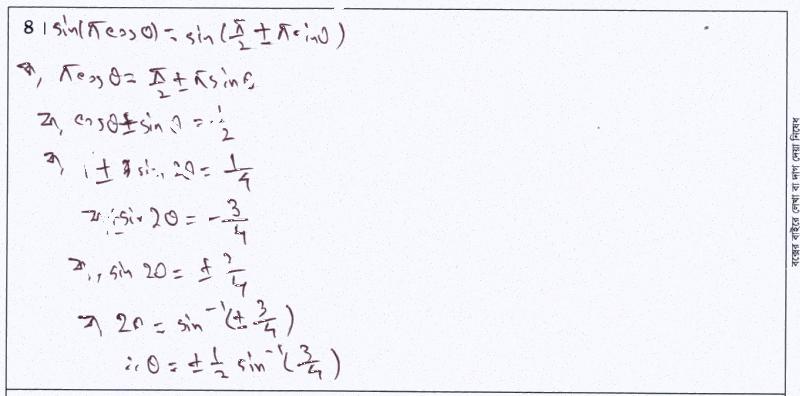 8। sin(π cos θ) = sin(π/2 ± π sin θ)
বা, π cos θ = π/2 ± π sin θ
বা, cos θ ± sin θ = 1/2
বা, 1 ± sin 2θ = 1/4
বা, ± sin 2θ = -3/4
বা, sin 2θ = ± 3/4
বা 2θ = sin⁻¹(± 3/4)
∴ θ = ± 1/2 sin⁻¹(3/4)
বক্সের বাইরে লেখা বা দাগ দেয়া নিষেধ